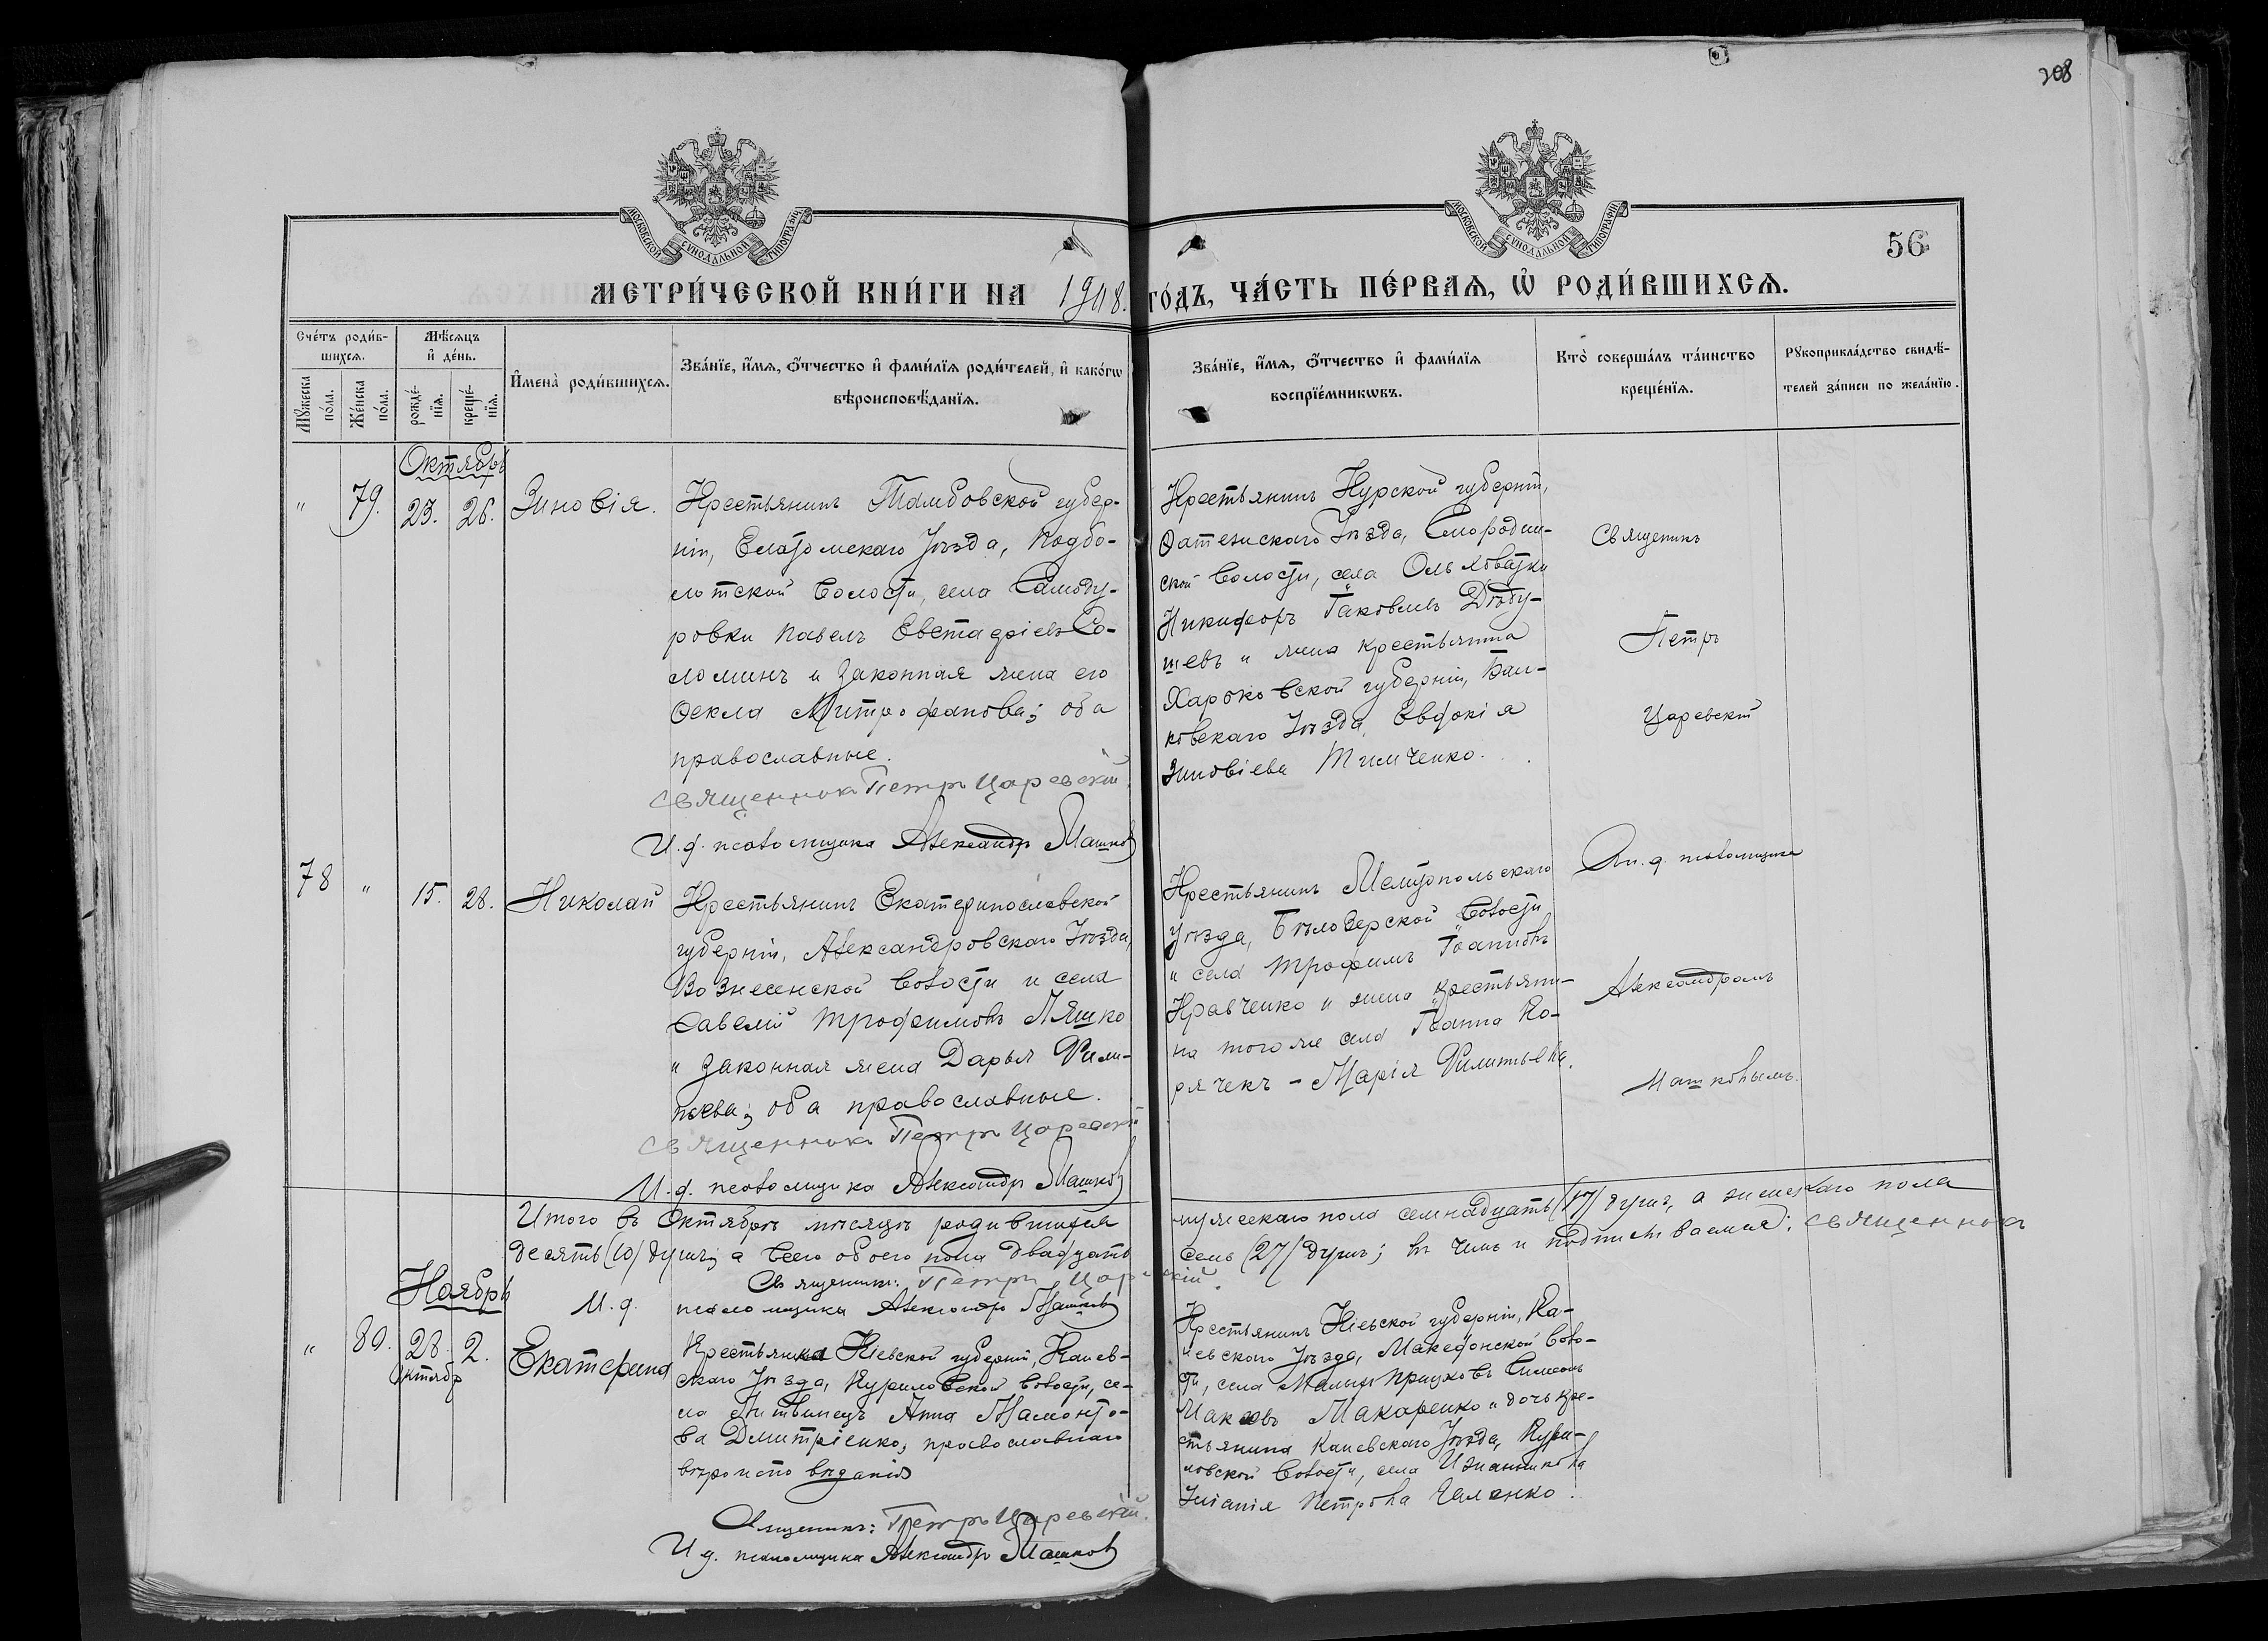 208
МОСКОВСКОЙ СѴНОДАЛЬНОЙ ТИПОГРАФІИ
МОСКОВСКОЙ СѴНОДАЛЬНОЙ ТИПОГРАФІИ
56
МЕТРИ́ЧЕСКОЙ КНИ́ГИ НА 1908. ГО́ДЪ, ЧА́СТЬ ПЕ́РВАѦ, Ѡ҆ РОДИ́ВШИХСѦ.
Сче́тъ роди́в-
шихсѧ.
Мꙋ́жеска по́ла.
Же́нска по́ла.
Мѣ́сѧцъ
и҆ де́нь.
рожде́-
нїѧ.
креще́-
нїѧ.
И҆мена̀ роди́вшихсѧ.
Зва́нїе, и҆́мѧ, ѻ҆́тчество и҆ фами́лїѧ роди́телей, и҆ како́гѡ
вѣроисповѣ́данїѧ.
Зва́нїе, и҆́мѧ, ѻ҆́тчество и҆ фами́лїѧ
воспрїе́мникѡвъ.
Кто̀ соверша́лъ та́инство
креще́нїѧ.
Рꙋкоприкла́дство свидѣ́-
телей за́писи по жела́нїю.
Октябрь
" 79. 23. 26. Зиновія.
Крестьянинъ Тамбовской губер-
ніи, Елатомскаго Уѣзда, Подбо-
лотской Волости, села Самоду-
ровки Павелъ Евстафіевъ Со-
ломинъ и законная жена его
Ѳекла Митрофанова; оба
православные.
Священникъ Петръ Царевскій.
И. д. псаломщика Александръ Машков
Крестьянинъ Курской губерніи,
Фатежскаго Уѣзда, Смородин-
ской Волости, села Ольховатки
Никифоръ Іаковлевъ Дѣду-
шевъ и жена крестьянина
Харьковской губерніи, Вал-
ковскаго Уѣзда, Евфокія
Зиновіева Тимченко.
Священникъ
Петръ
Царевскій
78 " 15. 28. Николай
Крестьянинъ Екатеринославской
губерніи, Александровскаго Уѣзда,
Вознесенской Волости и села
Савелій Трофимовъ Ляшко
и законная жена Дарья Фили-
пьева; оба православные.
Священникъ Петръ Царевскій
И. д. псаломщика Александръ Машков
Крестьянинъ Мелитопольскаго
уѣзда, Бѣлозерской Волости
и села Трофимъ Іоанновъ
Кравченко и жена крестьяни-
на того же села Іоанна Ко-
рячекъ - Марія Филипьева.
И. д. псаломщика
Александромъ
Машковымъ.
Итого въ Октябрѣ мѣсяцѣ родившихся мужескаго пола семнадцать (17) душъ, а женскаго пола
десять (10) душъ; а всего обоего пола двадцать семь (27) душъ; въ чемъ и подписываемся: священникъ
Священникъ: Петръ Царевскій.
И. д. псаломщика Александръ Машков
Ноябрь
" 80. 28. Октябр 2. Екатерина
Крестьянка Кіевской губерніи, Канев-
скаго Уѣзда, Куриловской Волости, се-
ла Литвинецъ Анна Мамонто-
ва Дмитріенко, православнаго
вѣроисповѣданія
Священникъ: Петръ Царевскій.
И д. псаломщика Александръ Машков
Крестьянинъ Кіевской губерніи, Ка-
невскаго Уѣзда, Македонской Воло-
сти, села Малыхъ Прицковъ Симеонъ
Іаковъ Макаренко и дочь кре-
стьянина Каневскаго Уѣзда, Кури-
ловской Волости, села
Іуліанія Петрова Галенко.